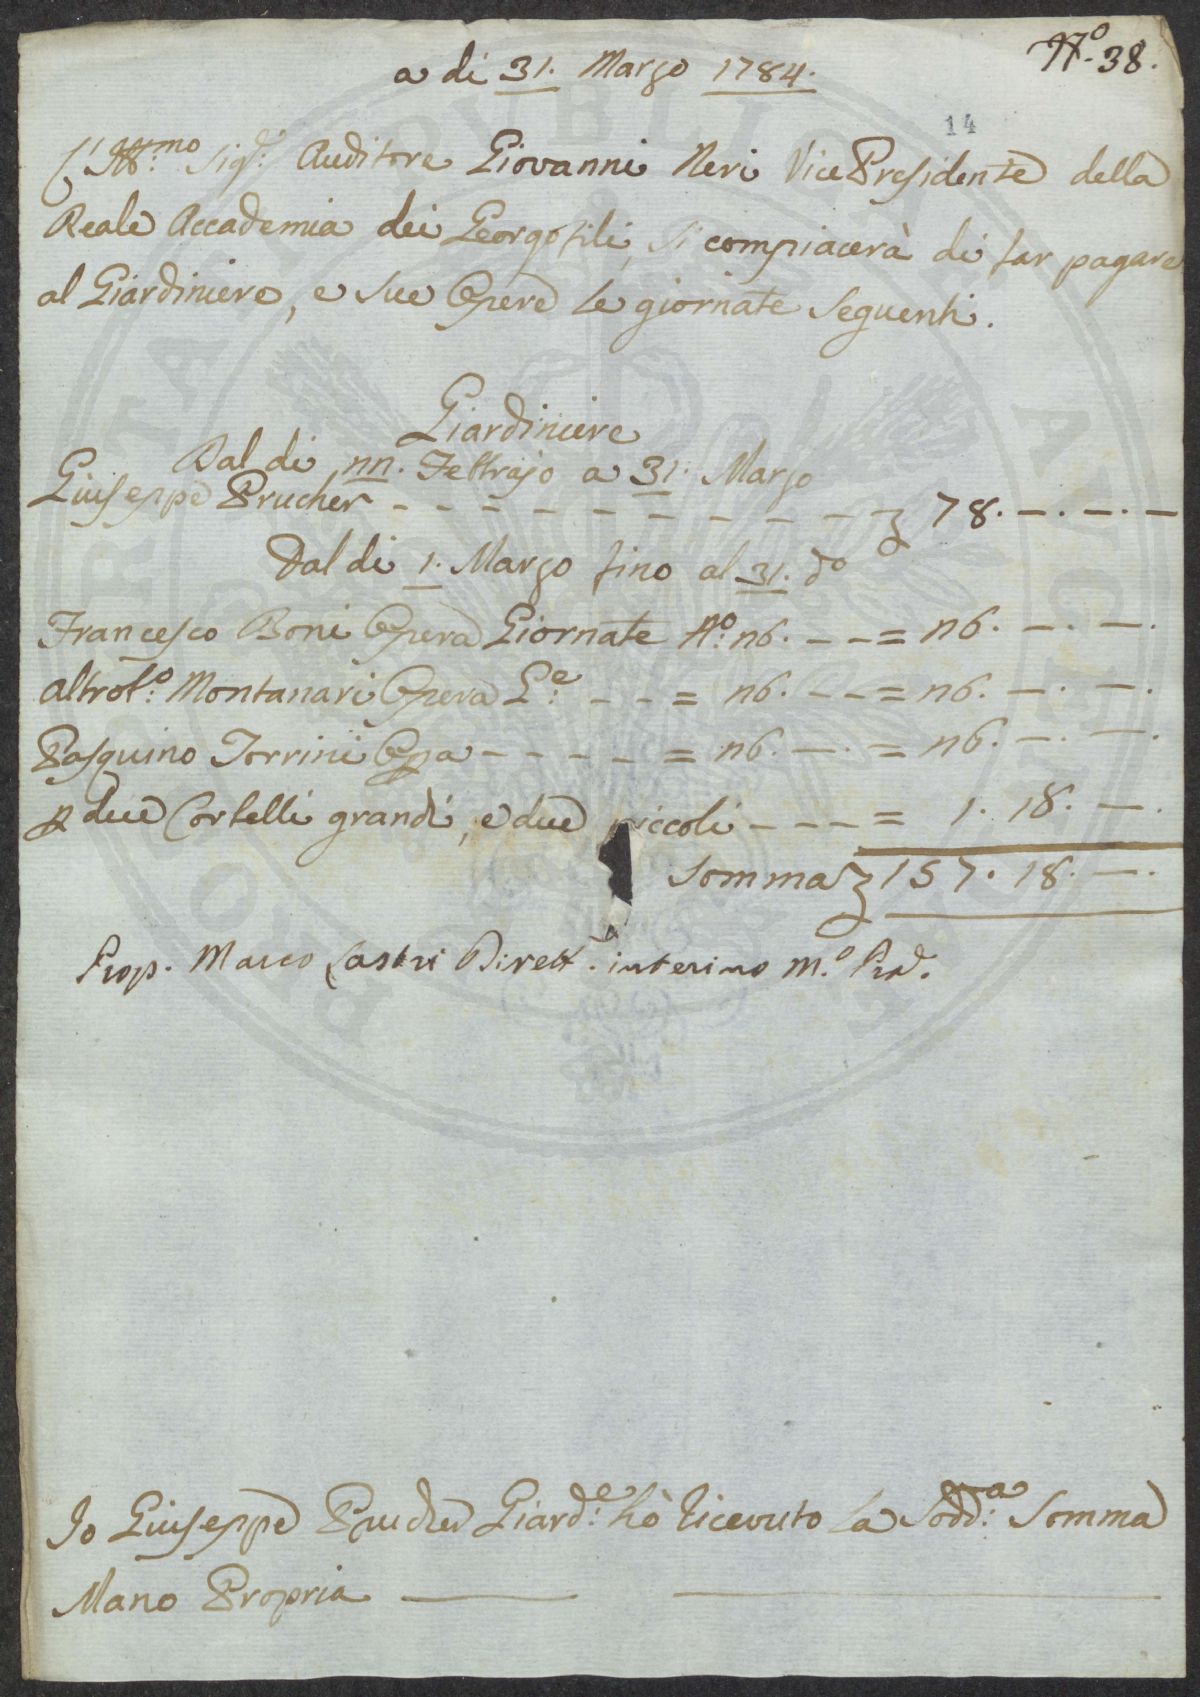 N.º 38.
a di 31. Marzo 1784.
14
L'Ill:mo Sig.r Auditore Giovanni Neri Vice Presidente della
Reale Accademia dei Georgofili, si compiacerà di far pagare
al Giardiniere, e sue Opere le giornate seguenti.
Giardiniere
Dal di 22. Febbrajo a 31. Marzo
Giuseppe Prucher - - - - - - - - - - £ 78. —. —. —
Dal di 1. Marzo fino al 31. do
Francesco Boni Opera Giornate N.º 26. - - = 26. —. —.
Montanari Opera G:e - - - = 26. - - = 26. —. —.
Pasquino Torrini Opa - - - - - = 26. —. = 26. —. —.
p due Cortelli grandi, e due piccoli - - - - = 1. 18. —.
Somma £ 157. 18. —.
Prop. Marco Lastri Dirett. interino m.º pra.
Io Giuseppe Prucher Giard:e hò ricevuto la Sodd:a Somma
Mano Propria